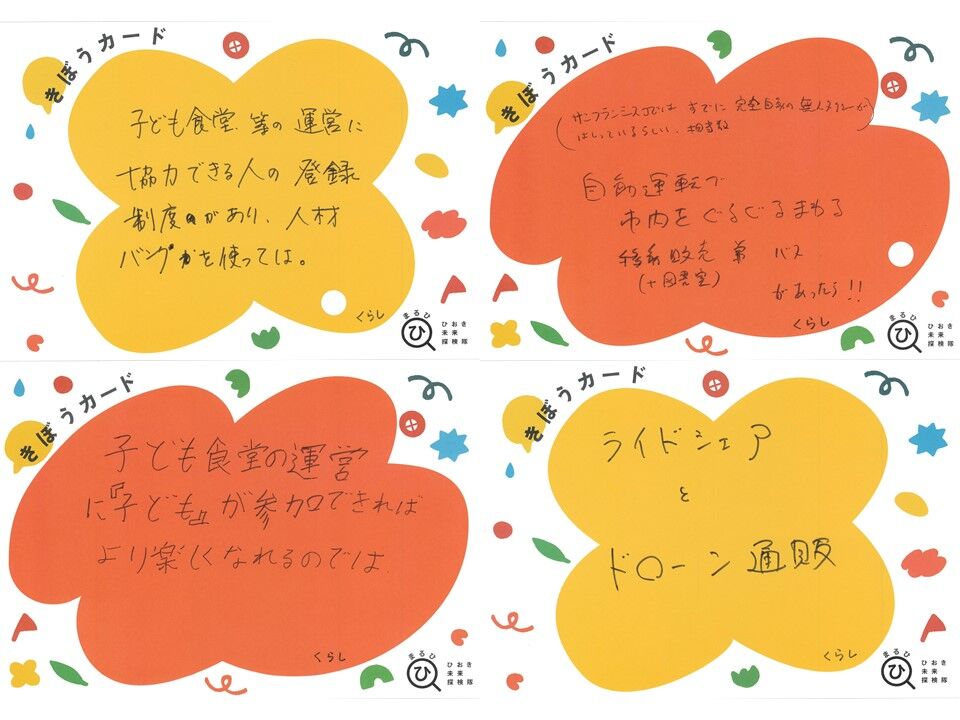 きぼうカード
子ども食堂等の運営に
協力できる人の登録
制度があり、人材
バンクを使っては。
くらし
まるひ
ひ
ひおき
未来
探検隊
きぼうカード
(サンフランシスコではすでに完全自動の無人タクシーが
はしっているらしい、
自動運転で
市内をぐるぐるまわる
移動販売 バス
(+図書室)
があったら!!
くらし
まるひ
ひ
ひおき
未来
探検隊
きぼうカード
子ども食堂の運営
に『子ども』が参加できれば
より楽しくなれるのでは
くらし
まるひ
ひ
ひおき
未来
探検隊
きぼうカード
ライドシェア
と
ドローン通販
くらし
まるひ
ひ
ひおき
未来
探検隊